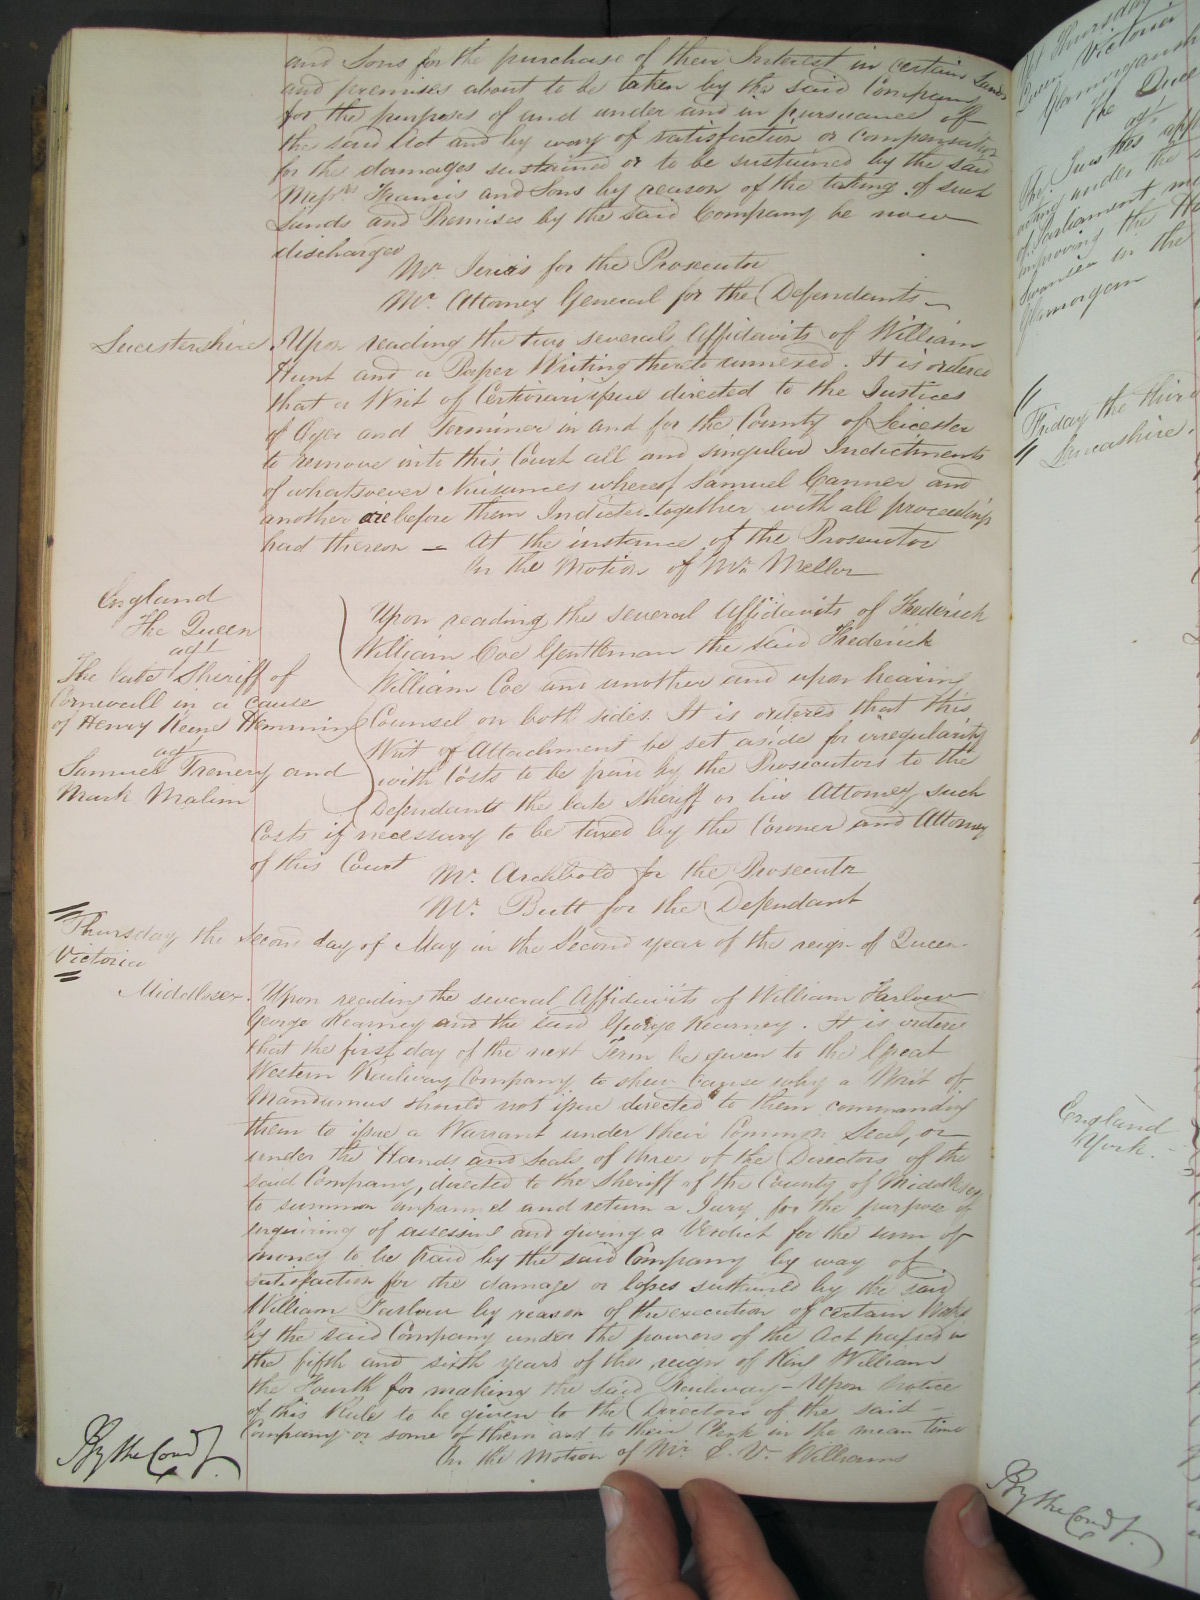 and Sons for the purchase of their Interest in certain Lands
and premises about to be taken by the said Company
for the purposes of and under and in pursuance of
the said Act and by way of satisfaction or compensation
for the damages sustained or to be sustained by the said
Messrs Francis and Sons by reason of the taking of such
Lands and Premises by the said Company be now
discharged
Mr. Jervis for the Prosecutor
Mr. Attorney General for the Defendants
Leicestershire. Upon reading the two several Affidavits of William
Hunt and a Paper Writing thereto annexed. It is ordered
that a Writ of Certiorari issue directed to the Justices
of Oyer and Terminer in and for the County of Leicester
to remove into this Court all and singular Indictments
of whatsoever Nuisances whereof Samuel Canner and
another are before them Indicted together with all proceedings
had thereon – At the instance of the Prosecutor
On the Motion of Mr. Mellor
England
The Queen
agt
The late Sheriff of
Cornwall in a cause
of Henry Keene Hemming
agt
Samuel Trenery and
Mark Malim
Upon reading the several Affidavits of Frederick
William Coe Gentleman the said Frederick
William Coe and another and upon hearing
Counsel on both sides. It is ordered that this
Writ of Attachment be set aside for irregularity
with Costs to be paid by the Prosecutors to the
Defendants the late Sheriff or his Attorney such
Costs if necessary to be taxed by the Coroner and Attorney
of this Court
Mr. Archbold for the Prosecutor
Mr. Butt for the Defendant
Thursday the Second day of May in the Second year of the reign of Queen
Victoria
Middlesex. Upon reading the several Affidavits of William Farlow
George Kearney and the said George Kearney. It is ordered
that the first day of the next Term be given to the Great
Western Railway Company to shew Cause why a Writ of
Mandamus should not issue directed to them commanding
them to issue a Warrant under their Common Seal, or
under the Hands and Seals of three of the Directors of the
said Company, directed to the Sheriff of the County of Middlesex
to summon impannel and return a Jury for the purpose of
inquiring of assessing and giving a Verdict for the sum of
money to be paid by the said Company by way of
satisfaction for the damage or losses sustained by the said
William Farlow by reason of the execution of certain Works
by the said Company under the powers of the Act passed in
the fifth and sixth years of the reign of King William
the Fourth for making the said Railway – Upon Notice
of this Rule to be given to the Directors of the said
Company or some of them and to their Clerk in the mean time
On the Motion of Mr. E. V. Williams
By the Court.
Thursday
Queen Victoria
Glamorganshire
The Queen
agt
The Justices
acting under the
of Parliament
improving the
Swansea in the
Glamorgan
Friday the third
Lancashire.
England
York.
By the Court.